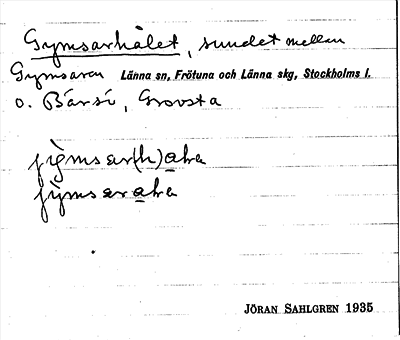 Gymsarhålet, sundet mellan
Gymsaren Länna sn, Frötuna och Länna skg, Stockholms l.
o. Bärsö, Grovsta
JÖRAN SAHLGREN 1935